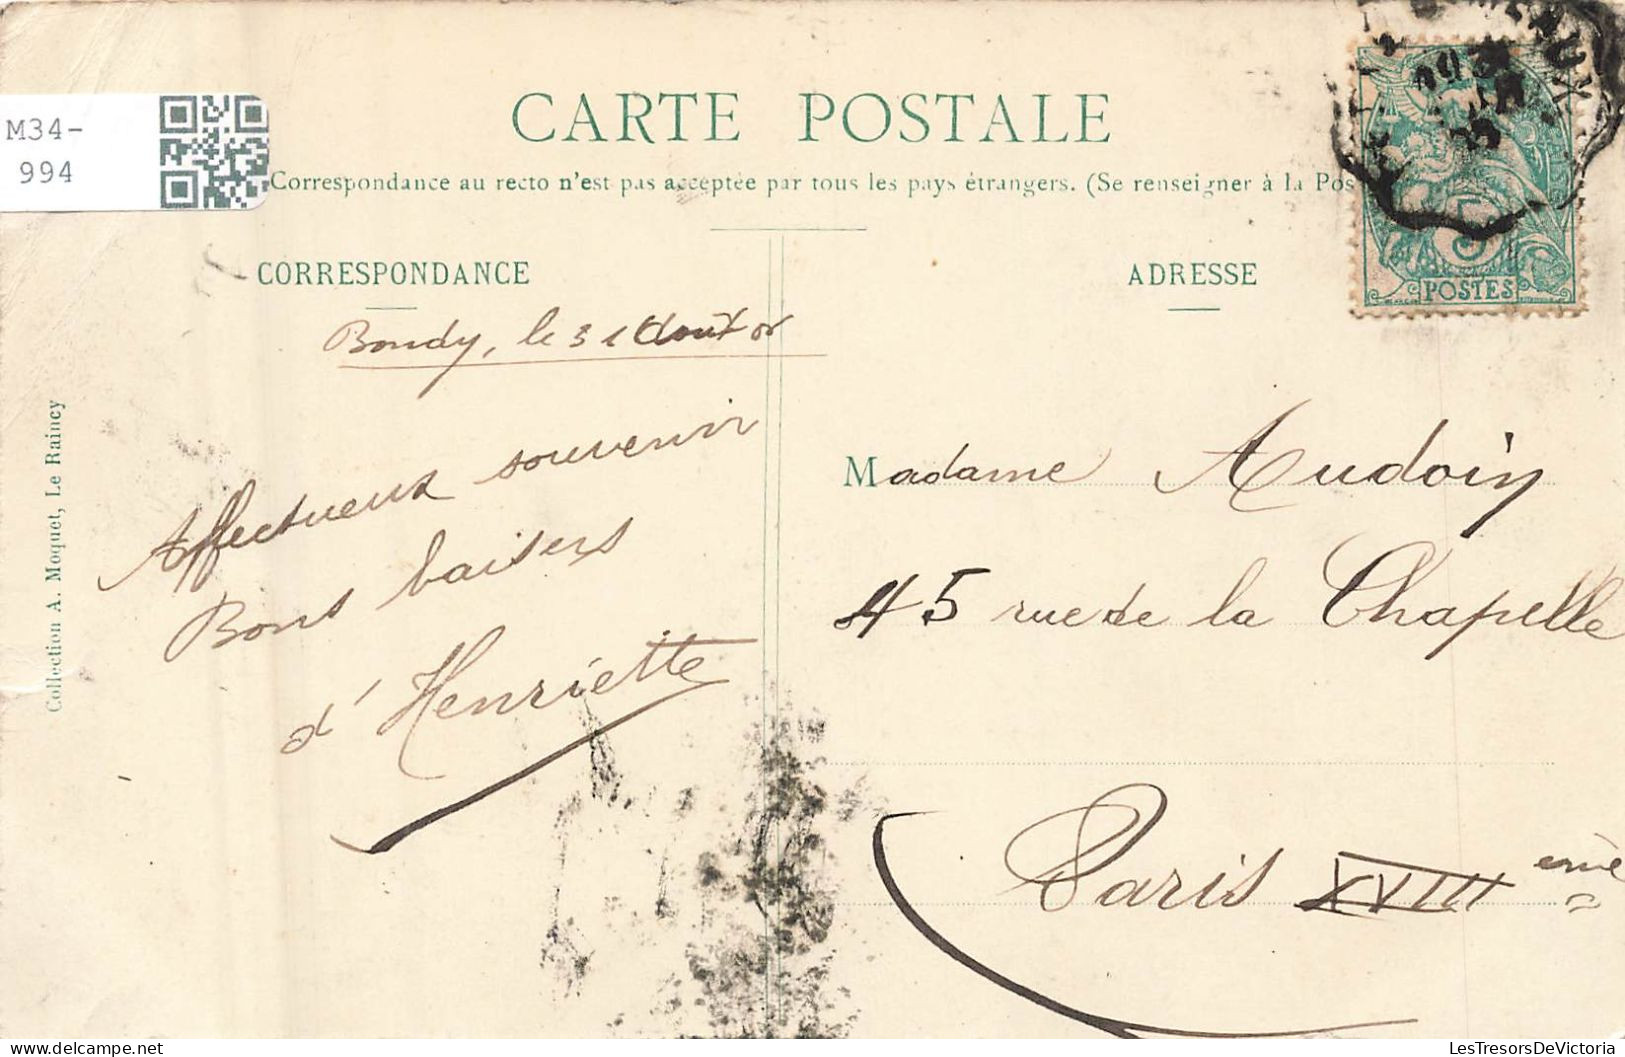 M34-
994
CARTE POSTALE
Correspondance au recto n'est pas acceptée par tous les pays étrangers. (Se renseigner à la Pos
CORRESPONDANCE
Bondy, le 31 Août
Affectueux souvenir
Bons baisers
d'Henriette
Collection A. Moquet, Le Raincy
ADRESSE
Madame Audoin
45 rue de la Chapelle
Paris XVIII eme
5
POSTES
LesTresorsDeVictoria